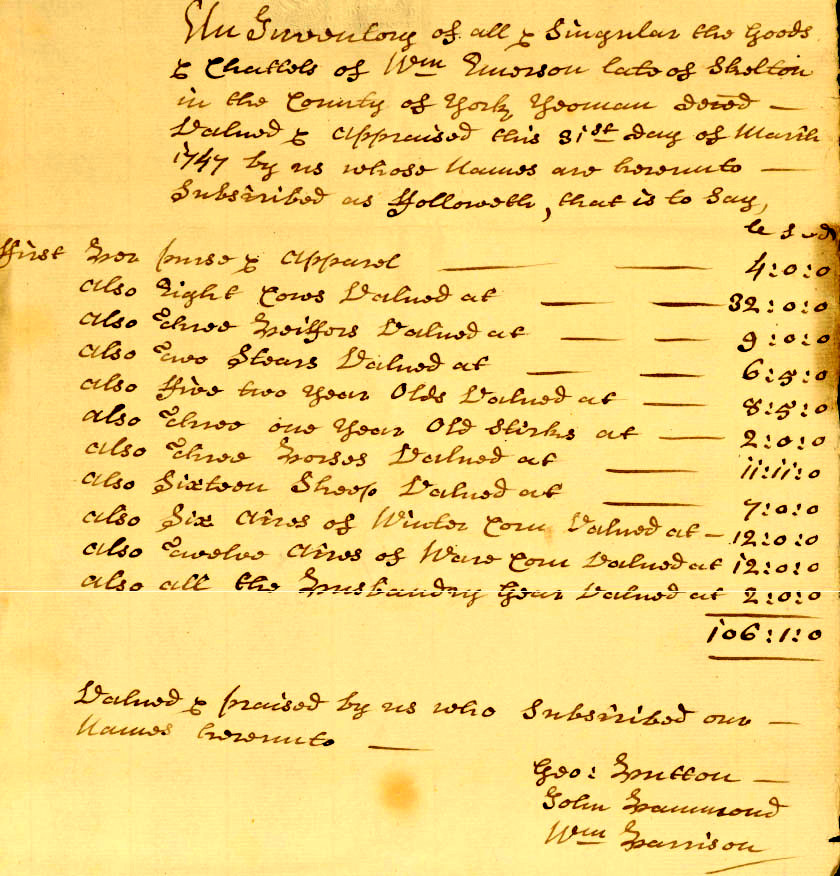 An Inventory of all & Singular the Goods
& Chattels of Wm Emerson late of Skelton
in the County of York Yeoman deced —
Valued & Appraised this 31st day of March
1747 by us whose Names are hereunto —
Subscribed as Followeth, that is to Say,
le s d
First Her purse & Apparel — — 4:0:0
also Eight Cows Valued at — — 32:0:0
also Three Heiffers Valued at — — 9:0:0
also Two Stears Valued at — — 6:5:0
also Five two Year Olds Valued at — 8:5:0
also Three one Year Old Stirks at — 2:0:0
also Three Horses Valued at — 11:11:0
also Sixteen Sheep Valued at — 7:0:0
also Six Acres of Winter Corn Valued at — 12:0:0
also Twelve Acres of Ware Corn Valued at 12:0:0
also all the Husbandry Gear Valued at 2:0:0
106:1:0
Valued & praised by us who Subscribed our —
Names hereunto —
Geo: Hutton —
John Hammond
Wm Harrison